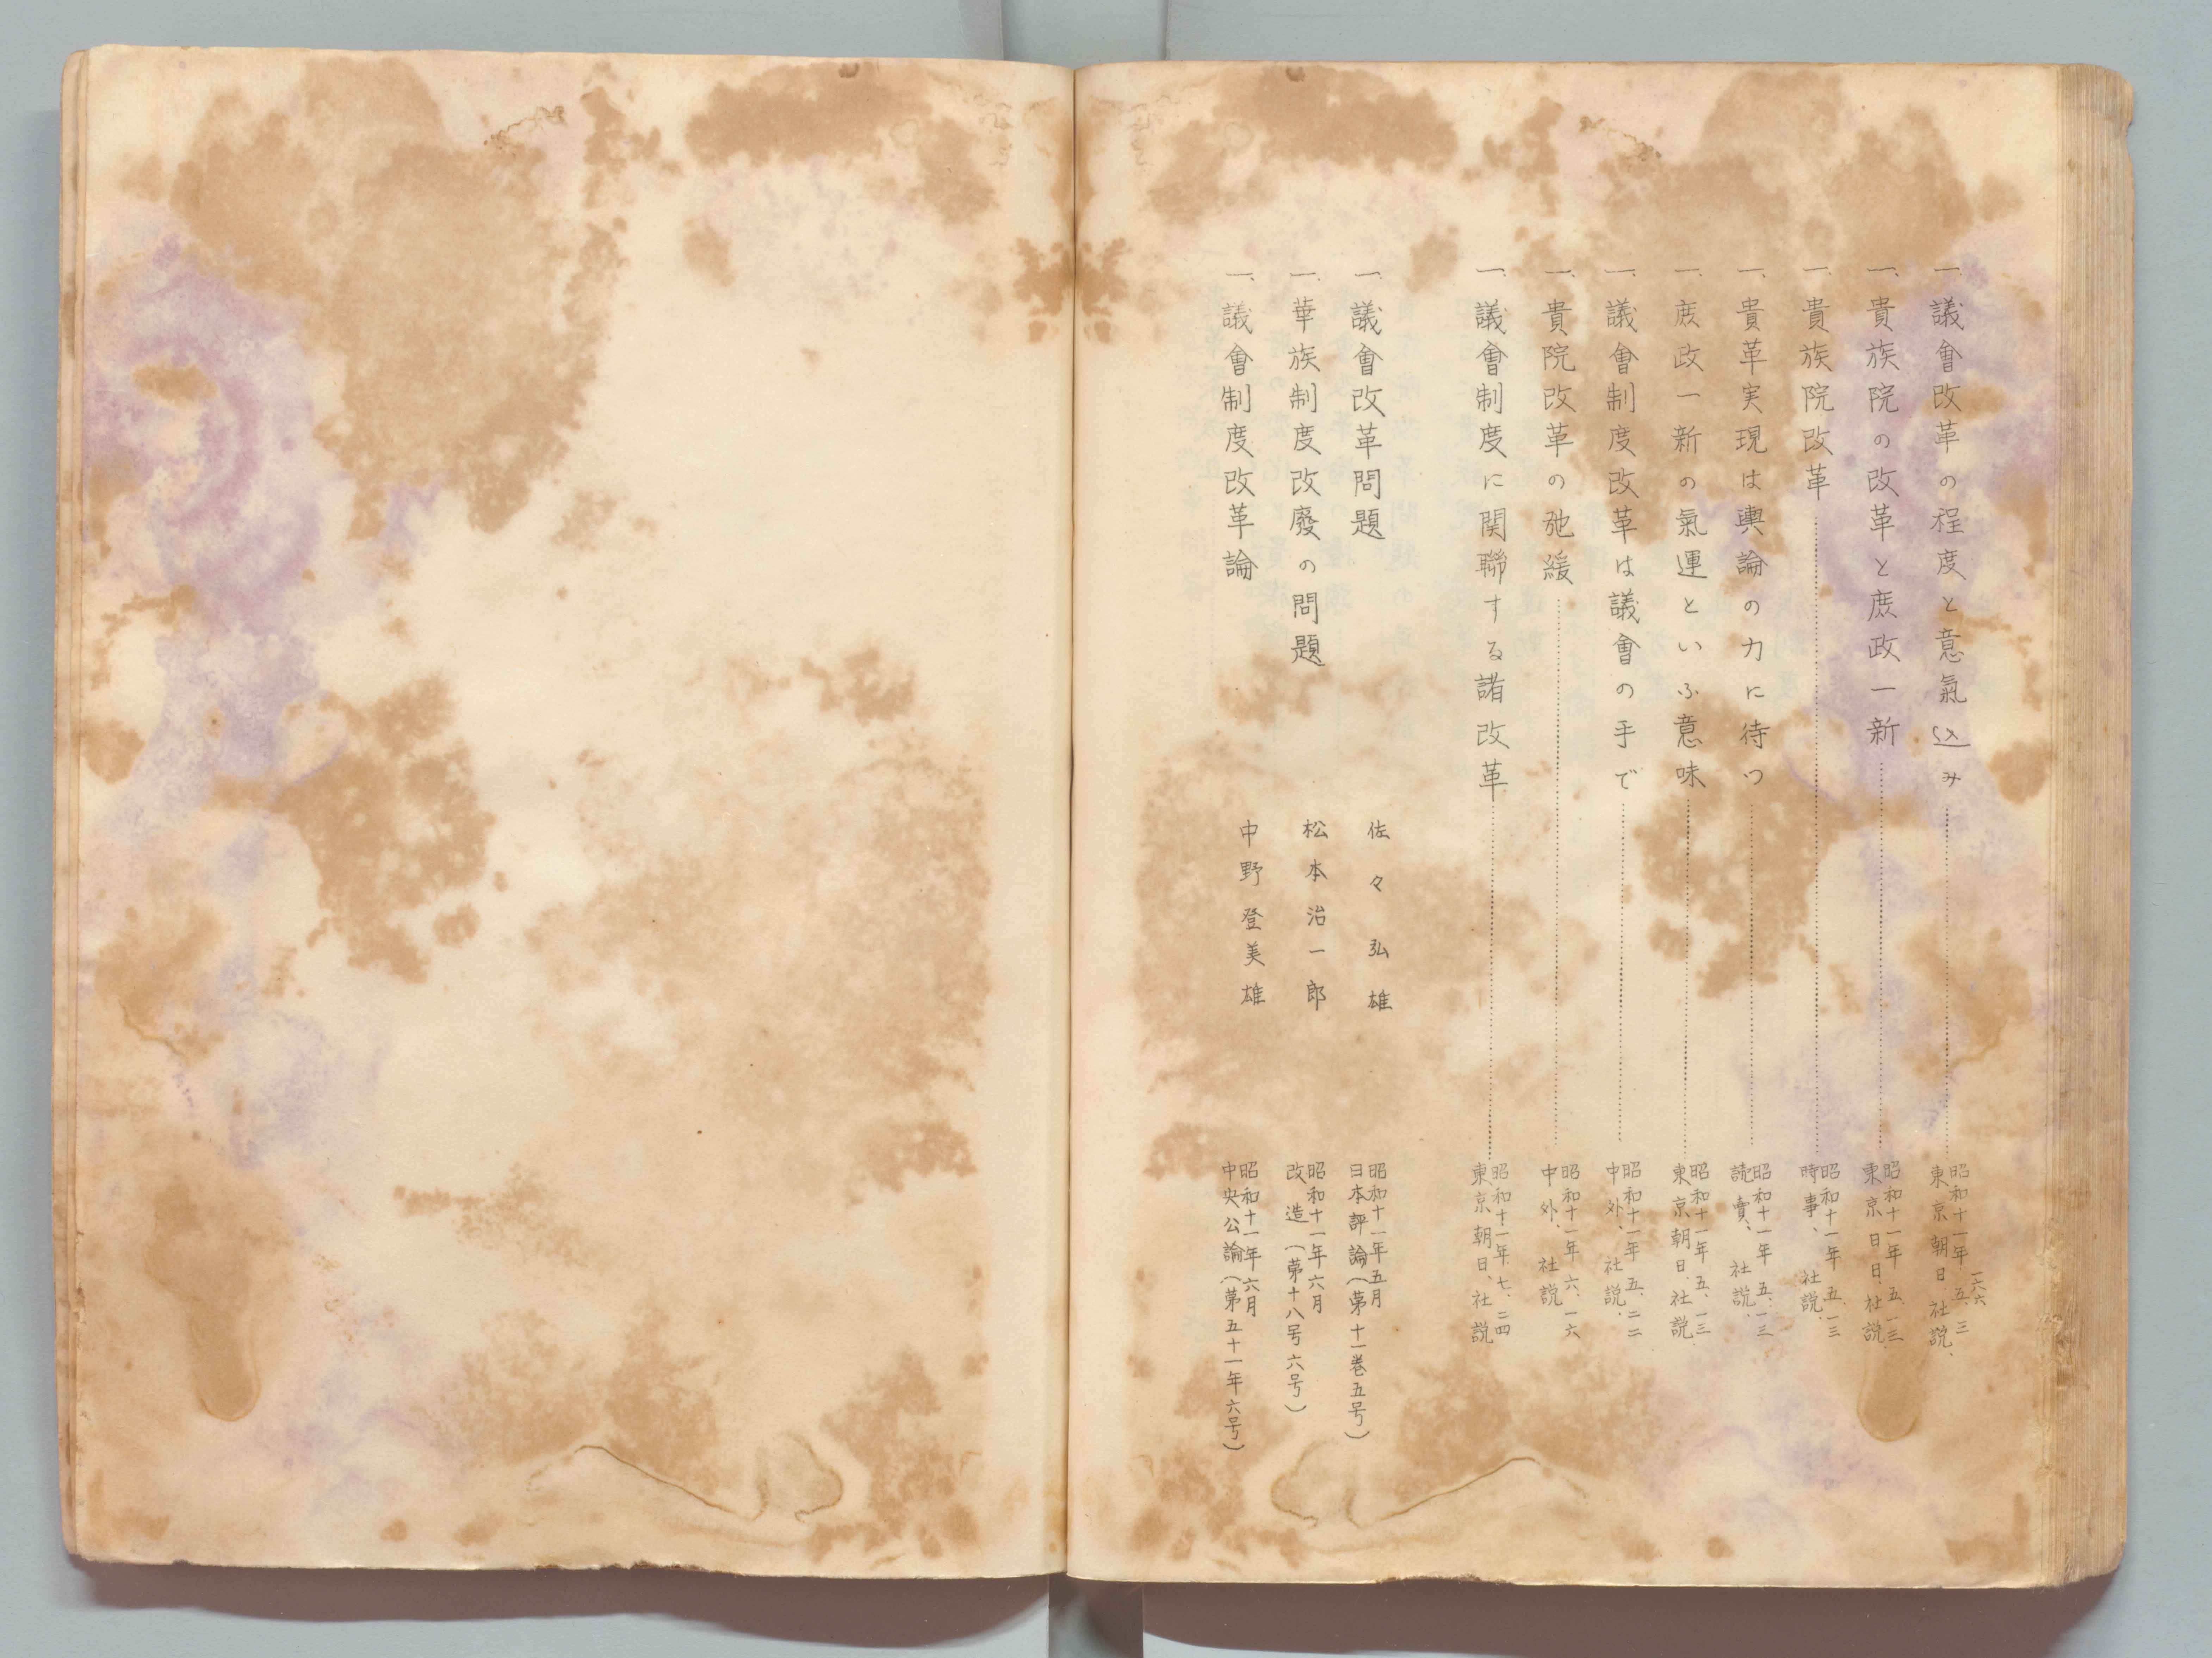 一、議會改革の程度と意氣込み……昭和十一年 五、三 東京朝日 社説、
一六六
一、貴族院の改革と庶政一新……昭和十一年 五、一三 東京日日、社説
一、貴族院改革……昭和十一年 五、一三 時事、社説
一、貴革実現は輿論の力に待つ……昭和十一年 五、一三 読賣、社説、
一、庶政一新の氣運といふ意味……昭和十一年 五、一三 東京朝日、社説
一、議會制度改革は議會の手で……昭和十一年 五、二二 中外、社説、
一、貴院改革の弛緩……昭和十一年 六、一六 中外、社説
一、議會制度に関聯する諸改革……昭和十一年、七、二四 東京朝日、社説
一、議會改革問題 佐々弘雄 昭和十一年五月 日本評論（第十一巻五号）
一、華族制度改廢の問題 松本治一郎 昭和十一年六月 改造（第十八号六号）
一、議會制度改革論 中野登美雄 昭和十一年六月 中央公論（第五十一年六号）